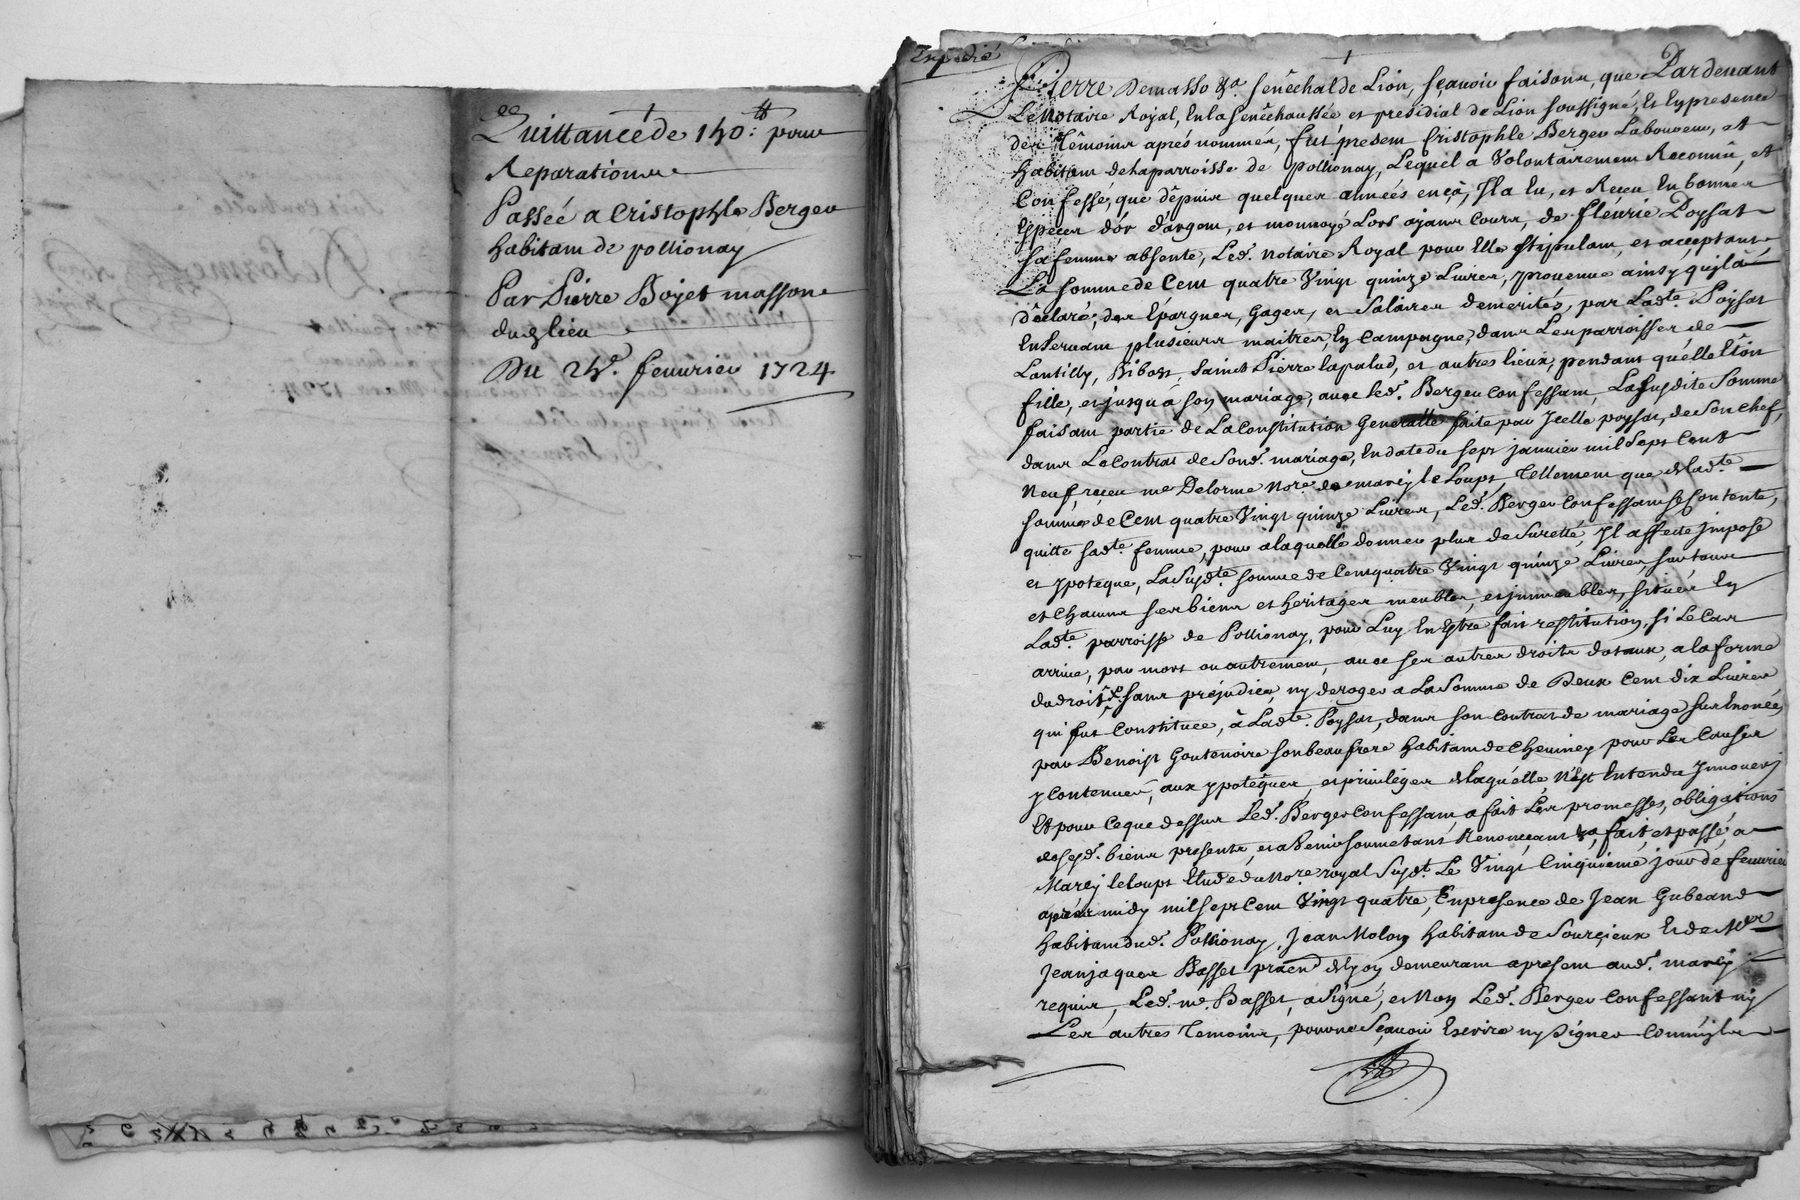 Quittance de 150:tt pour
Reparations
Passée a Cristophle Berger
habitant de pollionay
Par Pierre Boyet masson
dud lieu
Du 25e. feuurier 1724
Expedié
Pierre Demasso &a. senéchal de Lion, sçauoir faisons, que Pardeuant
Le Notaire Royal, En la senéchaussée et presidial de Lion soussigné, Et En presence
des Témoins aprés nommés, fut présent Cristophle Berger Laboureur, et
habitant de la parroisse de Pollionay, Lequel a Volontairement Reconnû, et
Confessé, que dépuis quelques années ençà, Il a Eu, et Receu En bonnes
Especes d'or d'argent, et monnoye Lors ayans cours, de fleurie Poysat
sa femme absente, Led. Notaire Royal pour Elle stipulant, et acceptant,
La somme de Cent quatre Vingt quinze Liures, prouenue ainsy qu'jl a
déclaré, des Épargnes, Gages, et Salaires démerités, par Ladte. Poysat
En seruant plusieurs maitres, En Campagne, dans Les parroisses de
Lantilly, Bibost, Saint Pierre lapalud, et autres lieux, pendant qu'elle Etoit
fille, et jusqu'á son mariage, auec led. Berger Confessant, La susdite Somme
faisant partie de La Constitution Generalle faite par Jcelle poysat, de son chef,
dans Le Contrat de Sond. mariage, En datte du sept januier mil Sept Cent
Neuf, receu me Delorme Nore. de marcy le Loupt, Tellement que de ladte.
somme de Cent quatre Vingt quinze Liures, Led. Berger Confessant Se Contente,
quitte sadte femme, pour a laquelle donner plus de Sureté, Il affecte jmpose
et ypoteque, La Susdte. somme de Cent quatre Vingt quinze Liures, sur tous
et chacuns ses biens et heritages meubles, et jmmeubles, situés En
Ladte. parroisse de Pollionay, pour Luy En Estre fait restitution, si Le Cas
arriue, par mort ou autrement, auec ses autres droits dotaux, a la forme
du droit, & sans prejudice, ny deroger a La Somme de Deux Cent dix Liures
qui fut Constituée, à Ladte. Poysat, dans son Contrat de mariage sus Enoncé,
par Benoist Goutenoire son beau frere habitant de Cheuiney pour Les Causes
y Contenues, aux ypotéques, et priuileges de laquelle N'est Entendu Jnnouer,
Et pour Ce que dessus Led. Berger Confessant, a fait Les promesses, obligations
de sesd. biens presents, et a Venir soumetant Renonçant &a, fait, et passé, a
Marcy le loupt Etude du Nore. royal Susdt. Le Vingt Cinquiéme jour de feurier
aprés midy mil Sept Cent Vingt quatre, En presence de Jean Gubeand
habitant dud. Pollionay, Jean Molon habitant de Sourcieux Et de Mer
Jean jaques Basset praen de Lyon demeurant a present aud. marcy
requis, Led. me. Basset, a Signé, et Non Led. Berger Confessant ny
Les autres Temoins, pour ne Sçauoir Escrire ny Signer Comm'jls